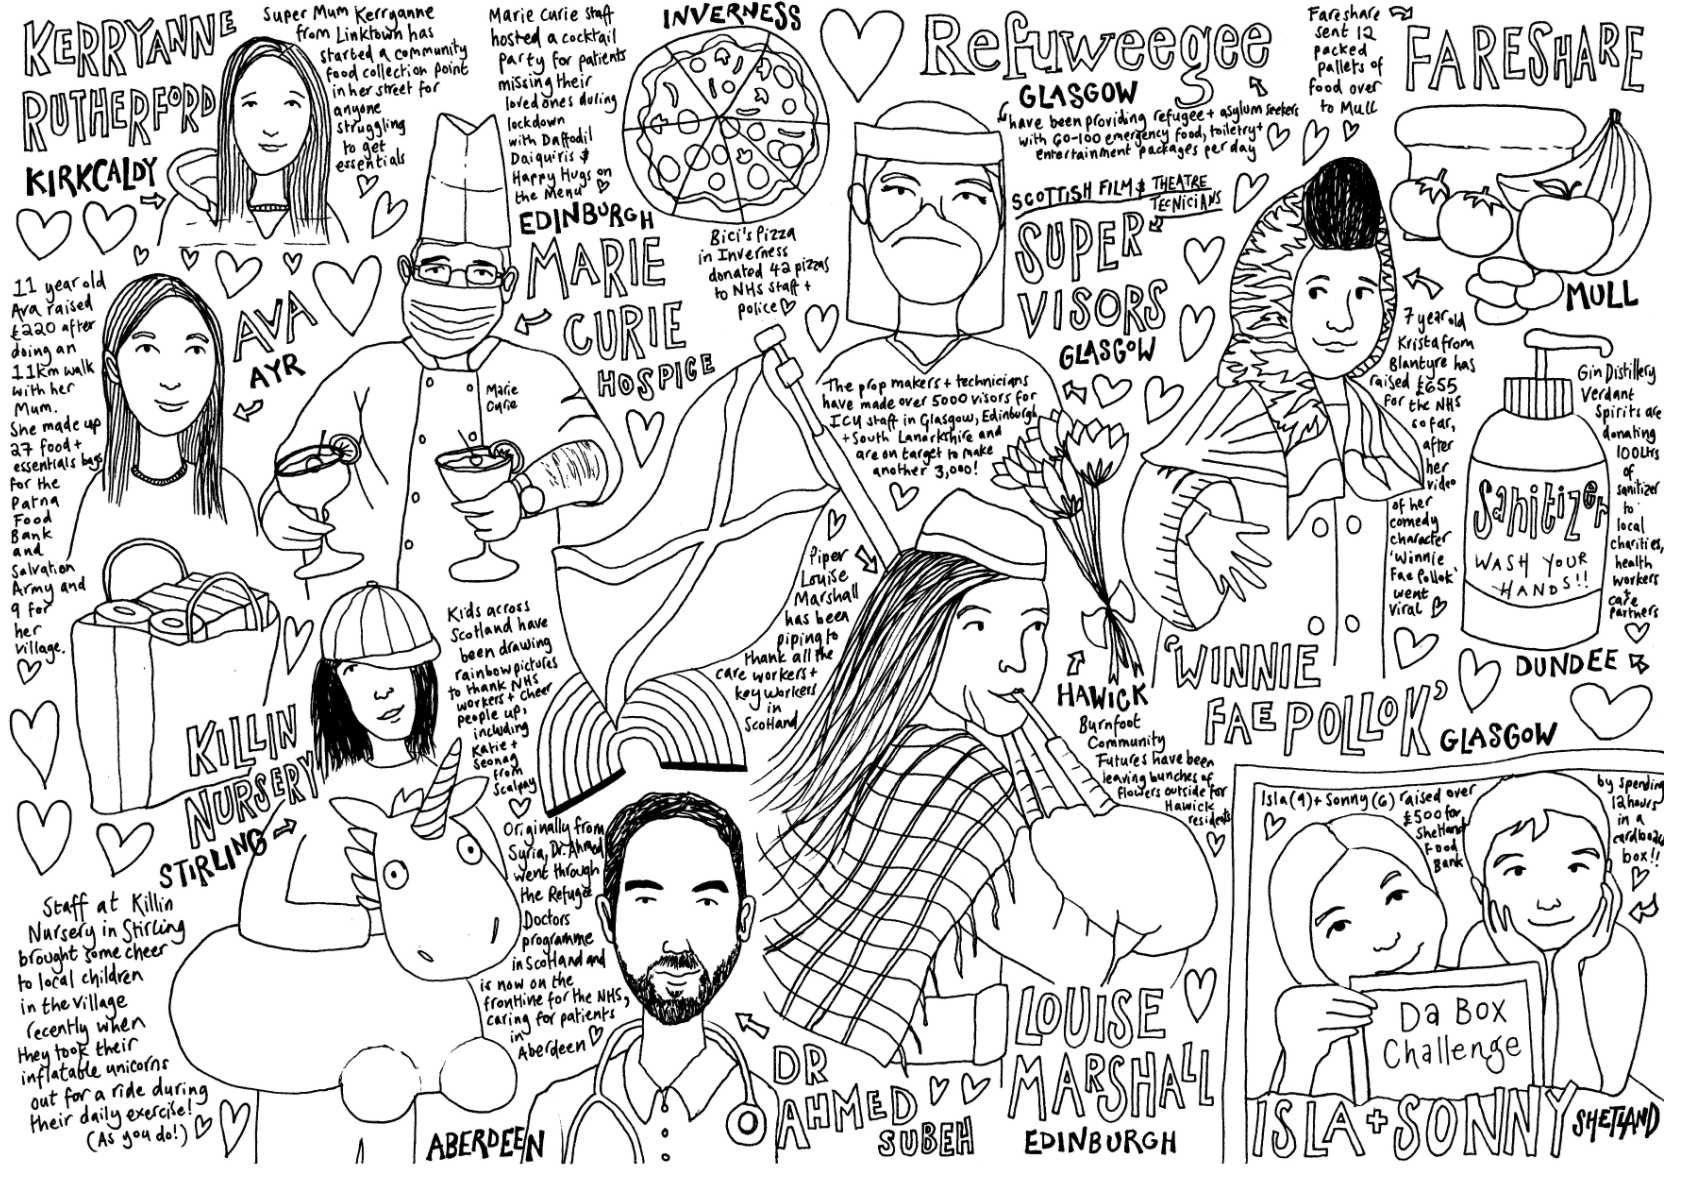 KERRYANNE
RUTHERFORD
KIRKCALDY
Super Mum Kerryanne
from Linktown has
started a community
food collection point
in her street for
anyone
struggling
to get
essentials
Marie Curie staff
hosted a cocktail
party for patients
missing their
loved ones during
lockdown
with Daffodil
Daiquiris &
Happy Hugs on
the Menu
EDINBURGH
MARIE
CURIE
HOSPICE
Marie
Curie
INVERNESS
Bici's Pizza
in Inverness
donated 42 pizzas
to NHS staff +
police
Refuweegee
GLASGOW
have been providing refugee + asylum seekers
with 60-100 emergency food, toiletry +
entertainment packages per day
Fareshare
sent 12
packed
pallets of
food over
to Mull
FARESHARE
MULL
SCOTTISH FILM & THEATRE
TECNICIANS
SUPER
VISORS
GLASGOW
The prop makers + technicians
have made over 5000 visors for
ICU staff in Glasgow, Edinburgh
+ South Lanarkshire and
are on target to make
another 3,000!
11 year old
Ava raised
£220 after
doing an
11km walk
with her
Mum.
She made up
27 food +
essentials bags
for the
Patna
Food
Bank
and
Salvation
Army and
9 for
her
village.
AVA
AYR
7 year old
Krista from
Blantyre has
raised £655
for the NHS
so far,
after
her
video
of her
comedy
character
'Winnie
Fae Pollok'
went
viral
'WINNIE
FAE POLLOK'
GLASGOW
Gin Distillery
Verdant
Spirits are
donating
100Ltrs
of
sanitizer
to
local
charities,
health
workers
+
care
partners
Sanitizer
WASH YOUR
HANDS!!
DUNDEE
Kids across
Scotland have
been drawing
rainbow pictures
to thank NHS
workers + cheer
people up,
including
Katie +
Seonag
from
Scalpay
Piper
Louise
Marshall
has been
piping to
thank all the
care workers +
key workers
in
Scotland
HAWICK
Burnfoot
Community
Futures have been
leaving bunches of
flowers outside for
Hawick
residents
KILLIN
NURSERY
STIRLING
Staff at Killin
Nursery in Stirling
brought some cheer
to local children
in the village
recently when
they took their
inflatable unicorns
out for a ride during
their daily exercise!
(As you do!)
Originally from
Syria, Dr. Ahmed
went through
the Refugee
Doctors
programme
in Scotland and
is now on the
frontline for the NHS,
caring for patients
in
Aberdeen
ABERDEEN
DR
AHMED
SUBEH
LOUISE
MARSHALL
EDINBURGH
Isla (9) + Sonny (6) raised over
£500 for
Shetland
Food
Bank
by spending
12 hours
in a
cardboard
box!!
Da Box
Challenge
ISLA + SONNY
SHETLAND